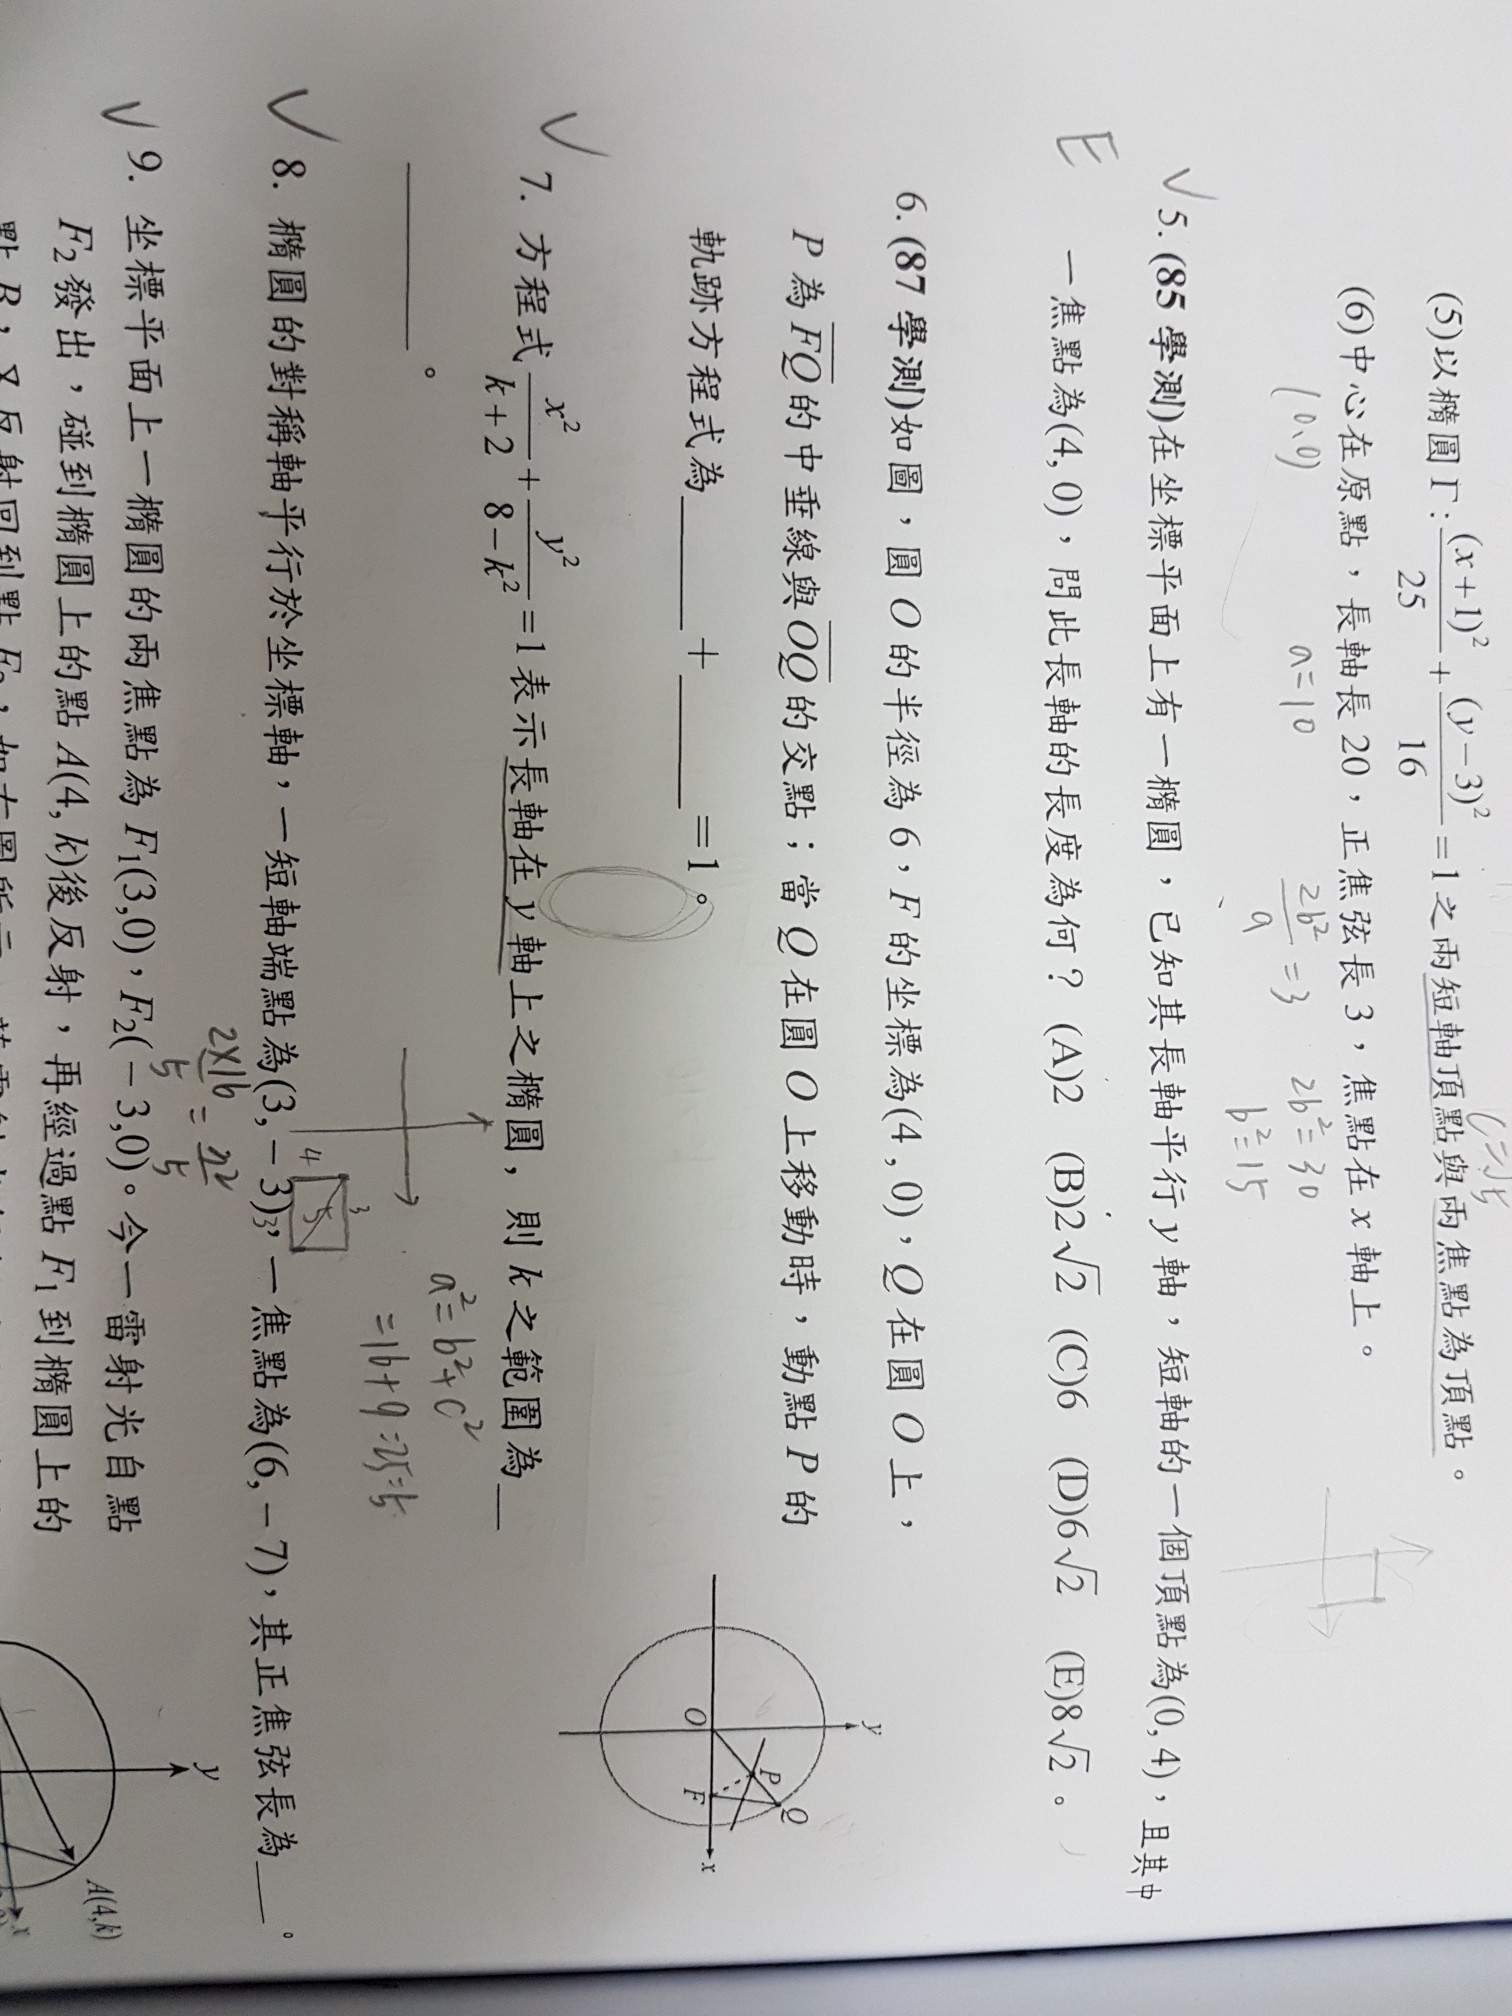 (5)以橢圓Γ: (x+1)²/25 + (y−3)²/16 = 1之兩短軸頂點與兩焦點為頂點。
(6)中心在原點，長軸長20，正焦弦長3，焦點在x軸上。
(0,0) a=10 2b²/a =3 2b²=30
b²=15
✓5.(85學測)在坐標平面上有一橢圓，已知其長軸平行y軸，短軸的一個頂點為(0,4)，且其中
E 一焦點為(4,0)，問此長軸的長度為何？ (A)2 (B)2√2 (C)6 (D)6√2 (E)8√2。
6.(87學測)如圖，圓O的半徑為6，F的坐標為(4,0)，Q在圓O上，
P為FQ的中垂線與OQ的交點；當Q在圓O上移動時，動點P的
軌跡方程式為____+____=1。
y
O
F
P
Q
x
✓7. 方程式 x²/(k+2) + y²/(8−k²) =1表示長軸在y軸上之橢圓，則k之範圍為__
______。
a²=b²+c²
=16+9=25=5
4 3 5
✓8. 橢圓的對稱軸平行於坐標軸，一短軸端點為(3,−3)，一焦點為(6,−7)，其正焦弦長為____。
2×16/5 = 32/5
✓9. 坐標平面上一橢圓的兩焦點為F₁(3,0)，F₂(−3,0)。今一雷射光自點
F₂發出，碰到橢圓上的點A(4,k)後反射，再經過點F₁到橢圓上的
點B，又反射回到點F₂，如右圖所示
y
A(4,k)
x